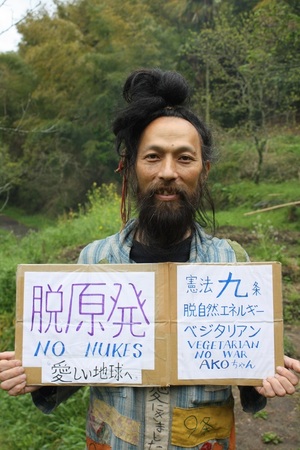 脱原発
NO NUKES
愛しい地球へ
憲法九条
脱自然エネルギー
ベジタリアン
VEGETARIAN
NO WAR
AKOちゃん